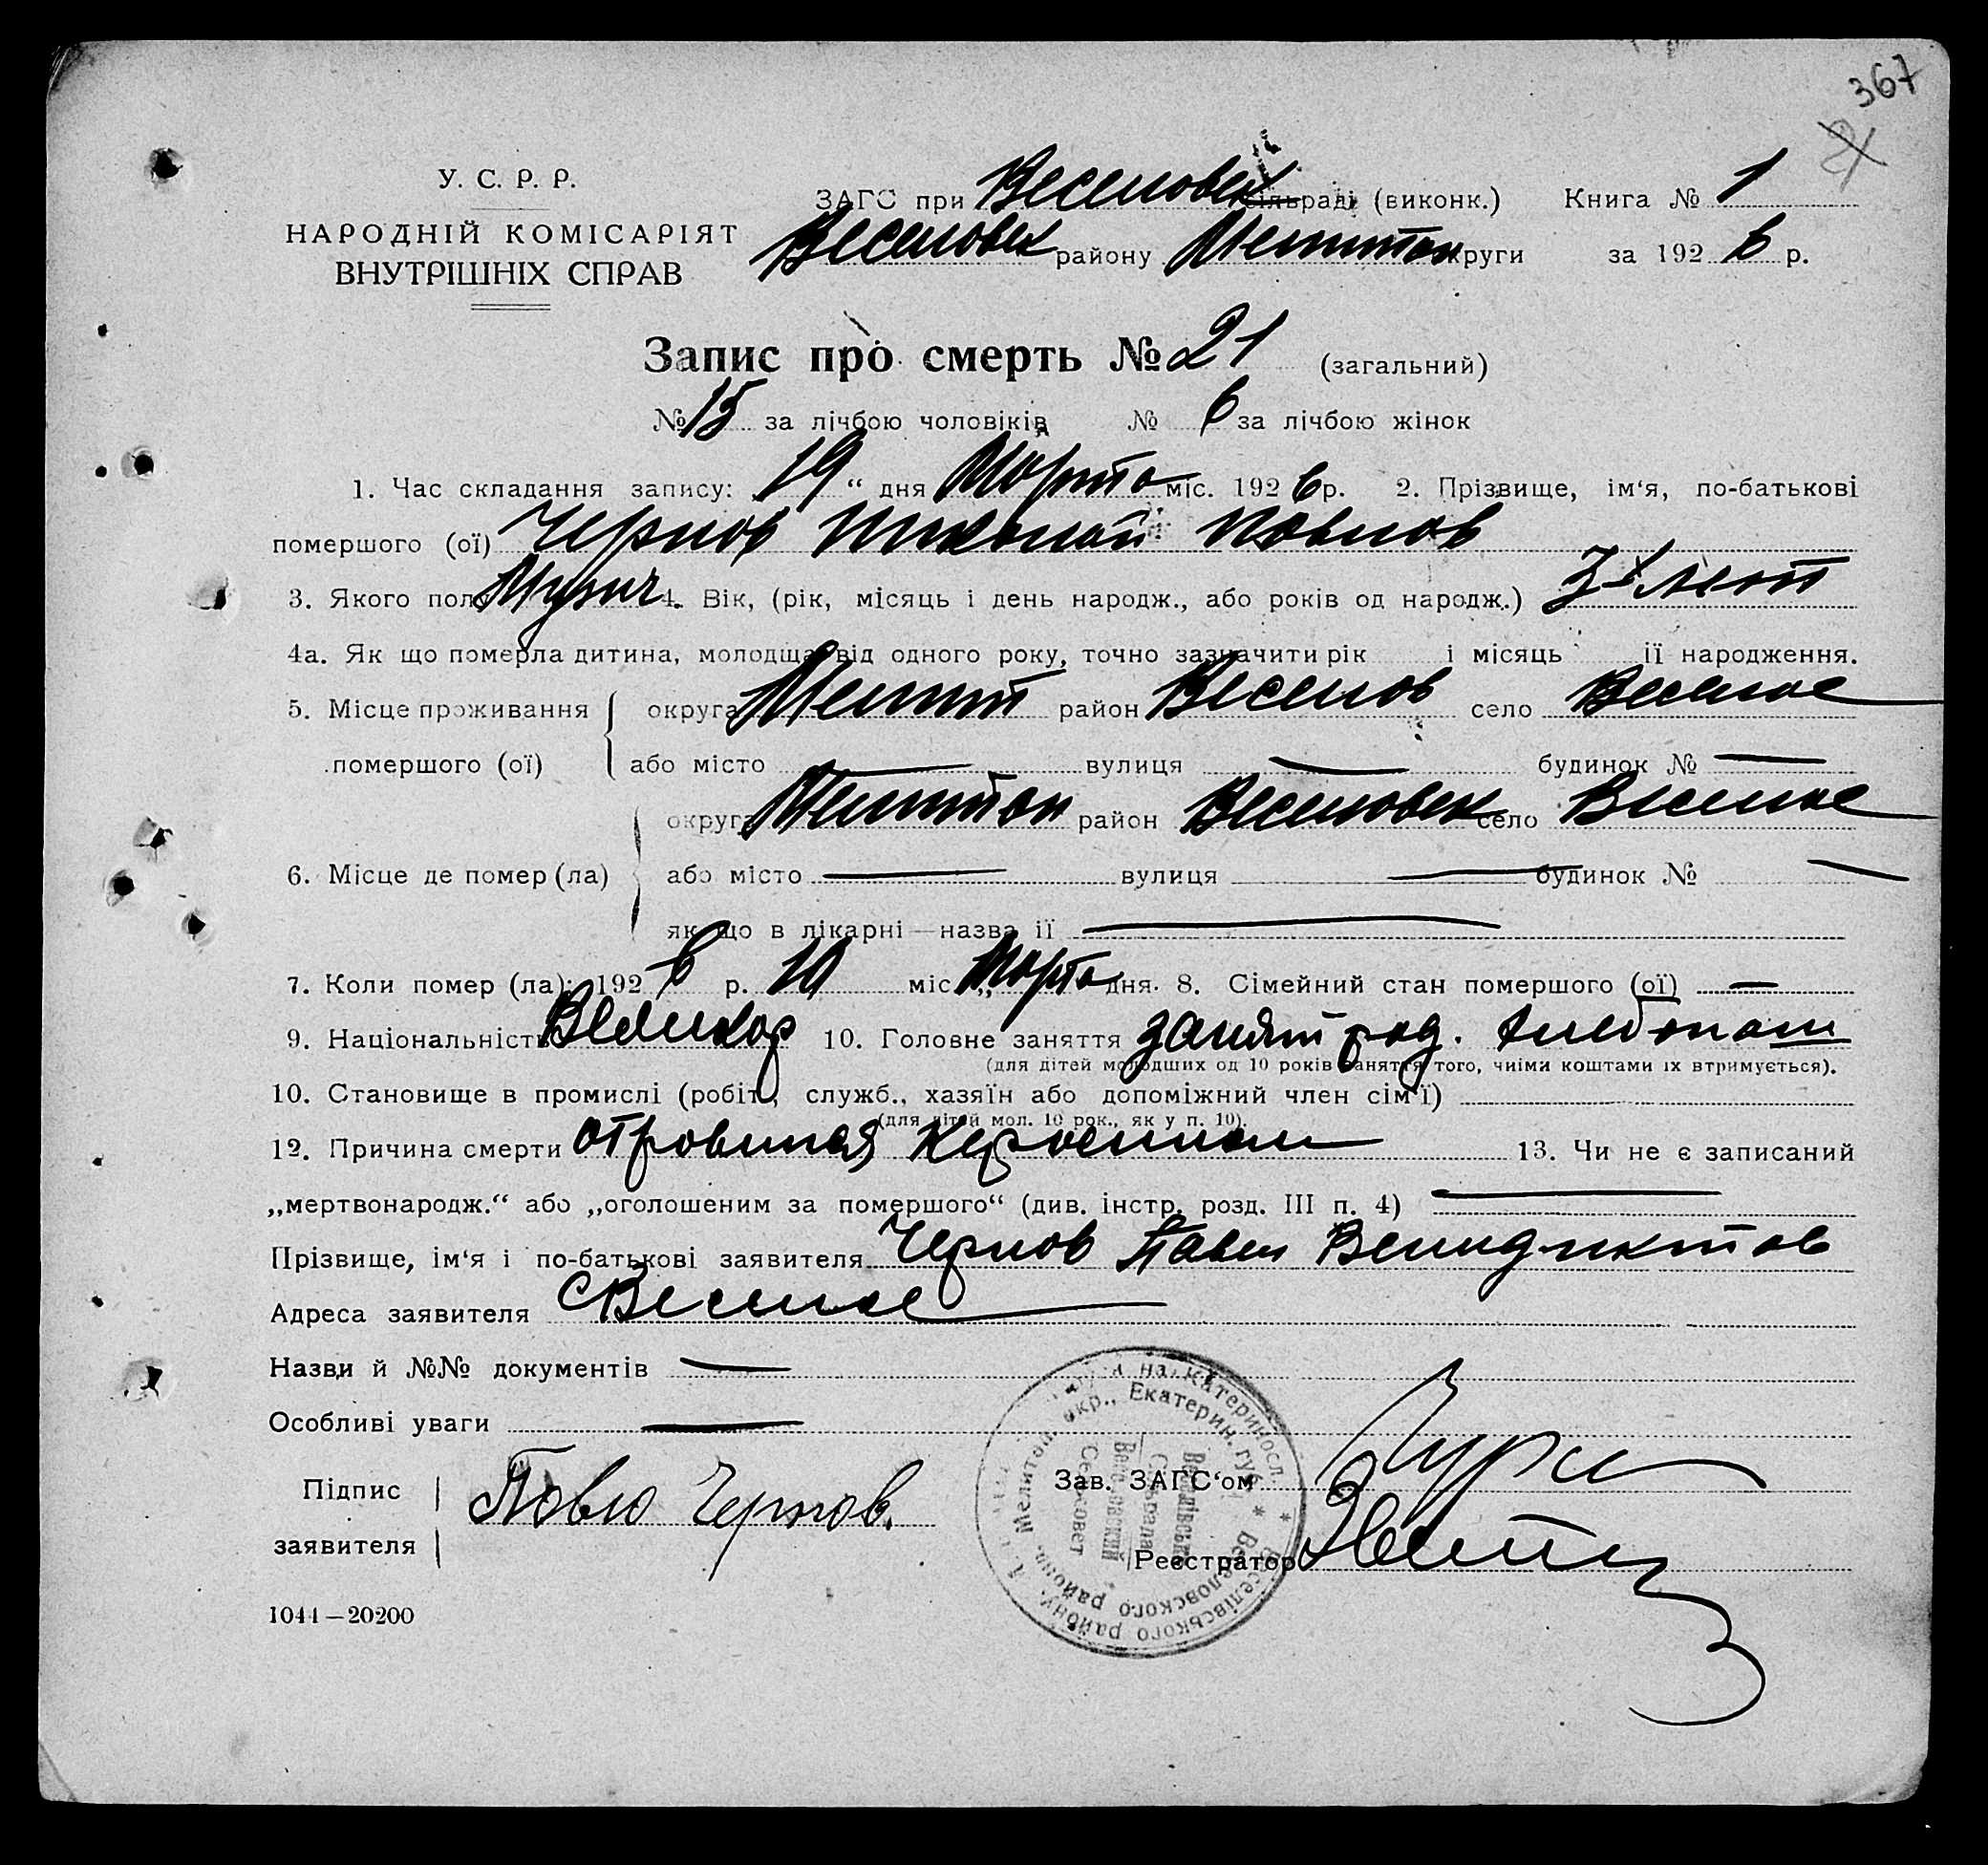 367
21
У. С. Р. Р.
НАРОДНІЙ КОМІСАРІЯТ
ВНУТРІШНІХ СПРАВ
ЗАГС при Веселовск сільраді (виконк.) Книга № 1
Веселовск району Мелитоп округи за 1926 р.
Запис про смерть № 21 (загальний)
№ 15 за лічбою чоловіків № 6 за лічбою жінок
1. Час складання запису: 19 “ дня Марта міс. 1926 р. 2. Прізвище, ім‘я, по-батькові
помершого (ої) Чернов Николай Павлов
3. Якого полу Мужч 4. Вік, (рік, місяць і день народж., або років од народж.) 3х лет
4а. Як що померла дитина, молодща від одного року, точно зазначити рік і місяць її народження.
5. Місце проживання округа Мелит район Веселов село Веселое
помершого (ої) або місто — вулиця — будинок № —
округа Мелитоп район Веселовск село Веселое
6. Місце де помер (ла) або місто — вулиця — будинок № —
як що в лікарні—назва її —
7. Коли помер (ла): 1926 р. 10 міс. „ Марта дня. 8. Сімейний стан помершого (ої) —
9. Національність Великор 10. Головне заняття занят род. хлебопаш
(для дітей молодших од 10 років заняття того, чиїми коштами їх втримується).
10. Становище в промислі (робітн., служб., хазяїн або допоміжний член сім‘ї)
(для дітей мол. 10 рок., як у п. 10).
12. Причина смерти отровился керосином 13. Чи не є записаний
„мертвонародж.“ або „оголошеним за помершого“ (див. інстр. розд. III п. 4) —
Прізвище, ім‘я і по-батькові заявителя Чернов Павел Венидиктов
Адреса заявителя с Веселое
Назви й №№ документів —
Особливі уваги —
Підпис
заявителя
Павло Чернов.
Зав. ЗАГС‘ом
Реєстратор
1044—20200